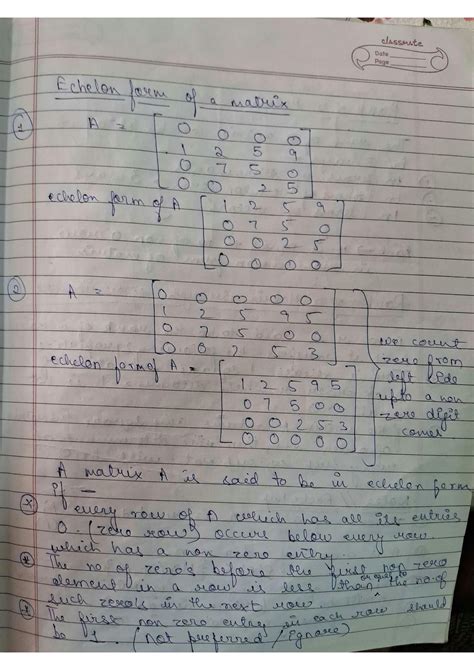 classmate
Date
Page
Echelon form of a matrix
1
A = 0 0 0 0
1 2 5 9
0 7 5 0
0 0 2 5
echelon form of A 1 2 5 9
0 7 5 0
0 0 2 5
0 0 0 0
2
A = 0 0 0 0 0
1 2 5 9 5
0 7 5 0 0
0 0 2 5 3
echelon form of A = 1 2 5 9 5
0 7 5 0 0
0 0 2 5 3
0 0 0 0 0
we count
zero from
left side
upto a non
zero digit
comes
A matrix A is said to be in echelon form
if —
every row of A which has all its entries
0 (zero row) occurs below every row
which has a non zero entry.
The no of zero's before the first non zero
element in a row is less than or equal to the no of
such zero's in the next row.
The first non zero entry in each row should
be 1. (not preferred / ignore)